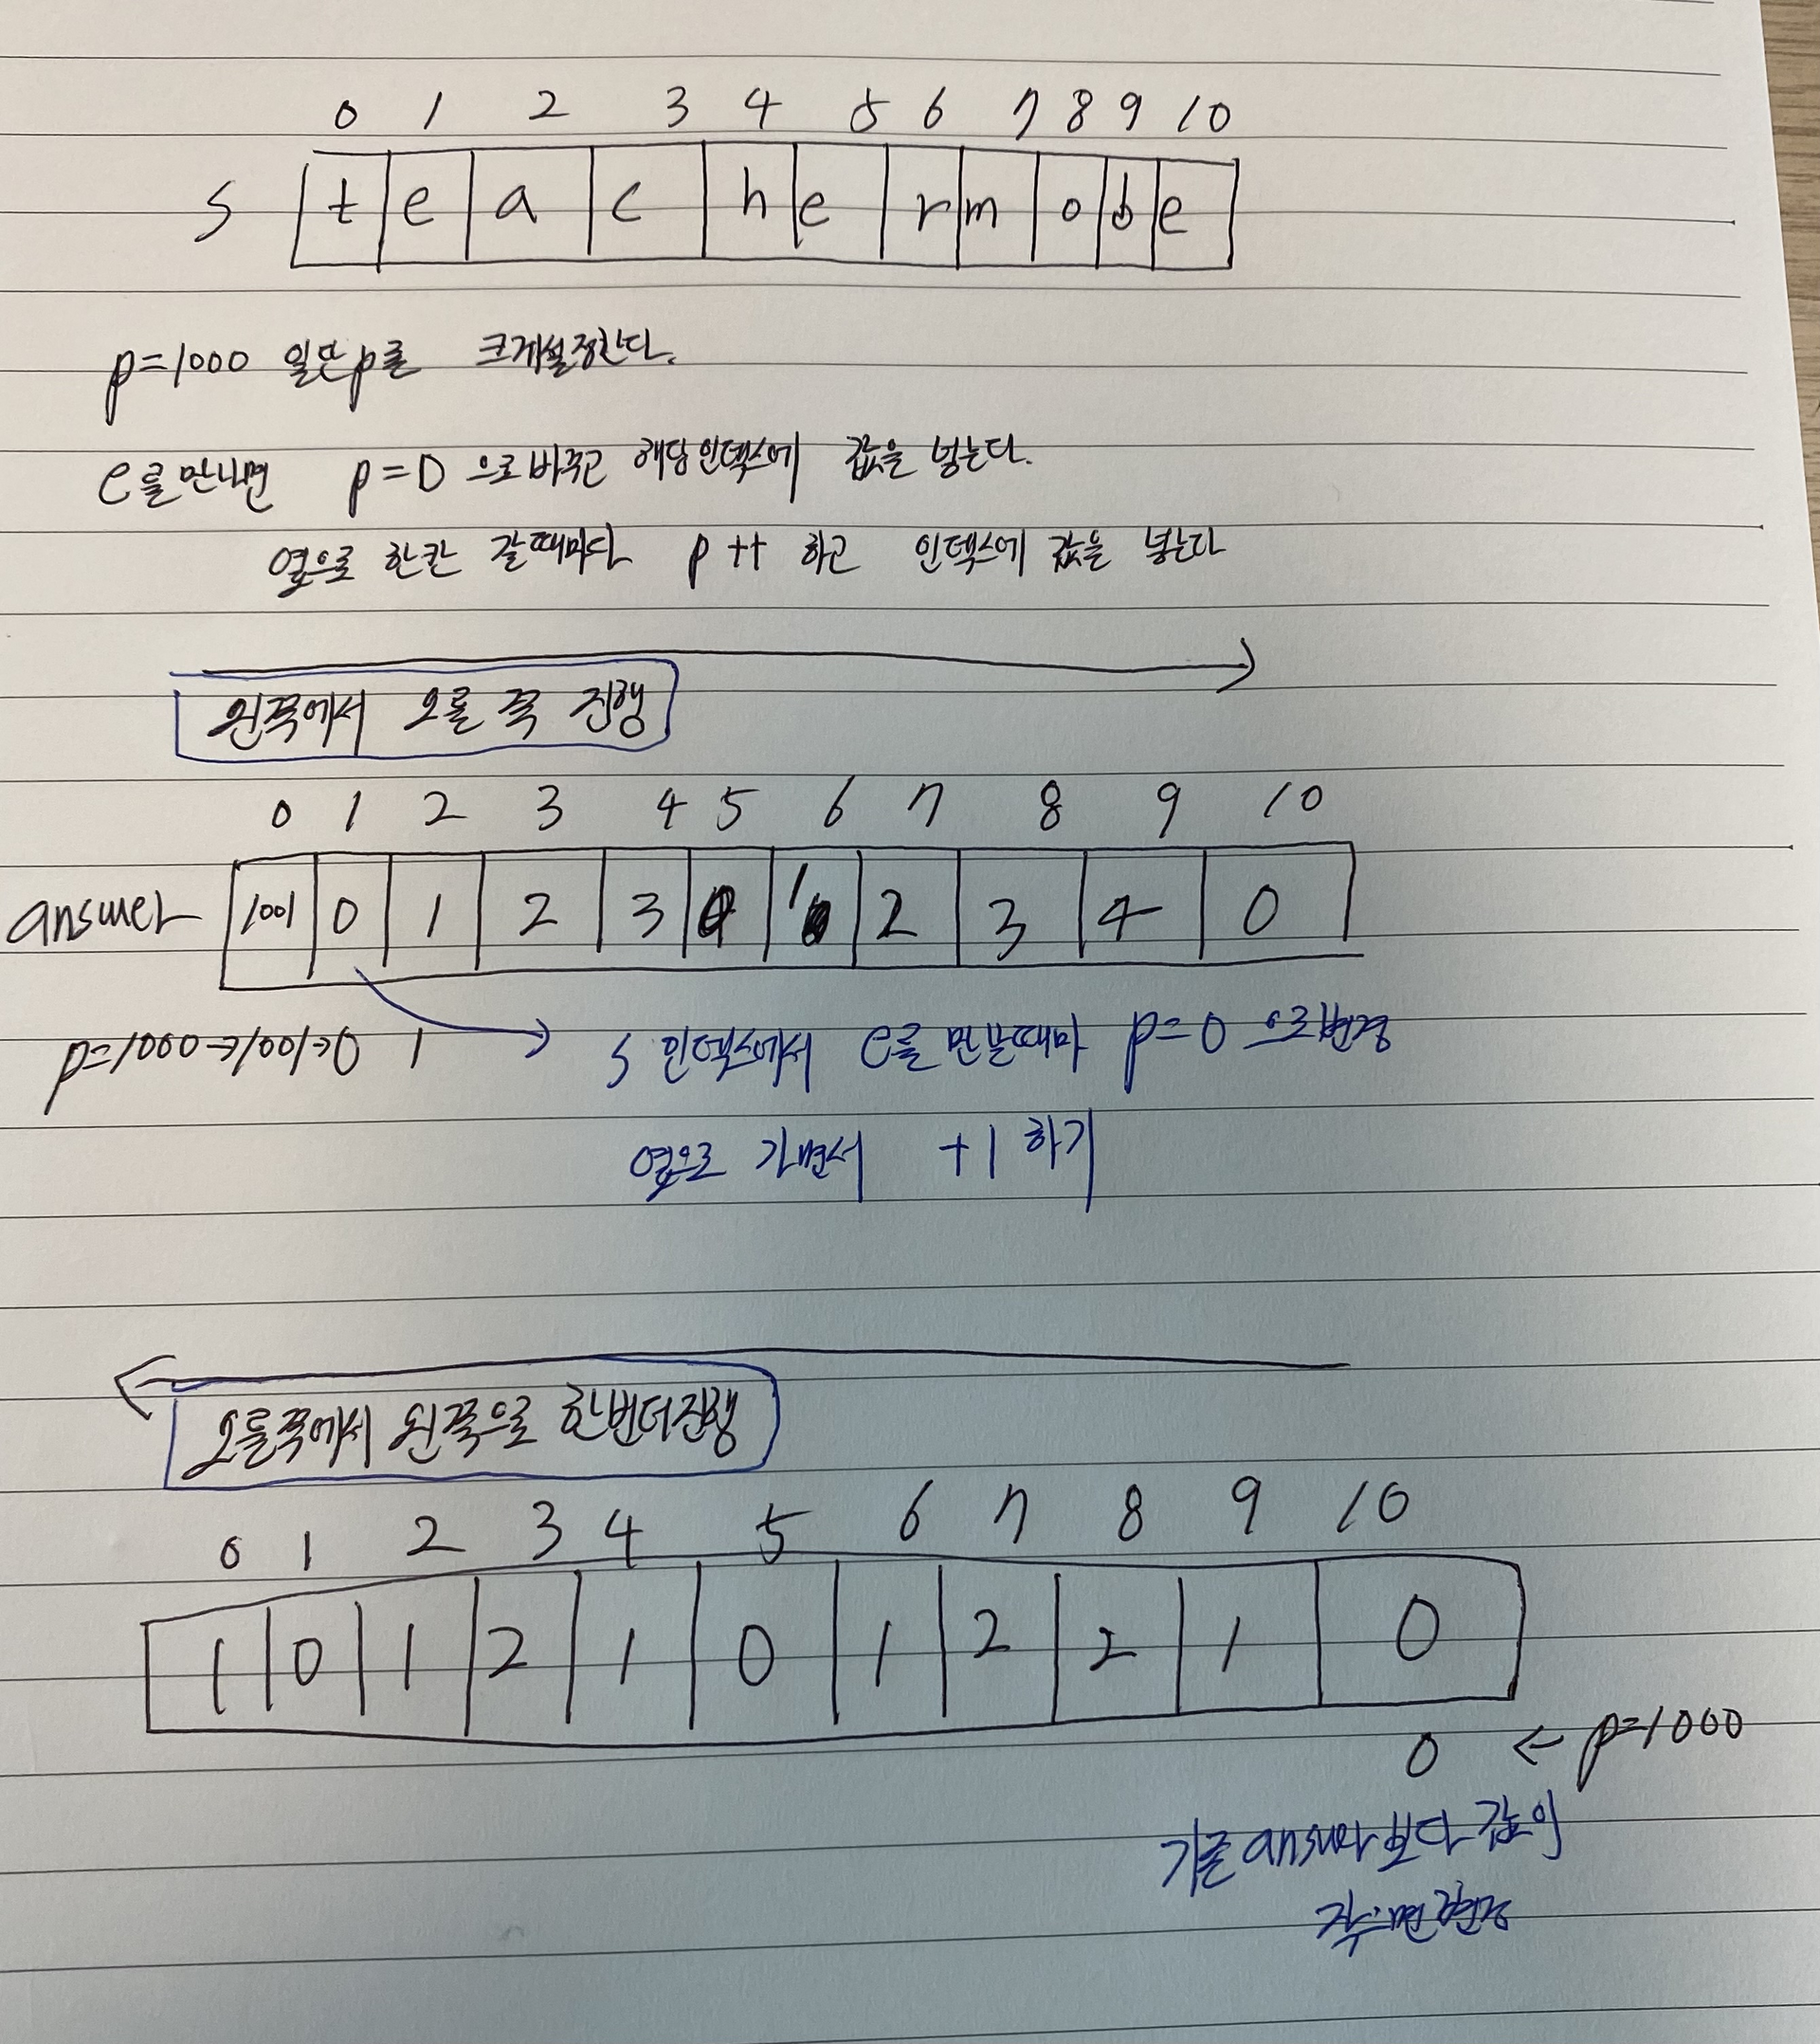 0 1 2 3 4 5 6 7 8 9 10
S t e a c h e r m o b e
p=1000 일단 p를 크게설정한다.
e를만나면 p=0 으로바꾸고 해당인덱스에 값을 넣는다.
옆으로 한칸 갈때마다 p++ 하고 인덱스에 값을 넣는다
왼쪽에서 오를쪽 진행
0 1 2 3 4 5 6 7 8 9 10
answer 1001 0 1 2 3 0 1 2 3 4 0
p=1000→1001→0 1 → S 인덱스에서 e를 만날때마 p=0 으로변경
옆으로 가면서 +1 하기
오를쪽에서 왼쪽으로 한번더진행
0 1 2 3 4 5 6 7 8 9 10
1 0 1 2 1 0 1 2 2 1 0
0 ← p=1000
기존 answer 보다 값이
작으면 변경